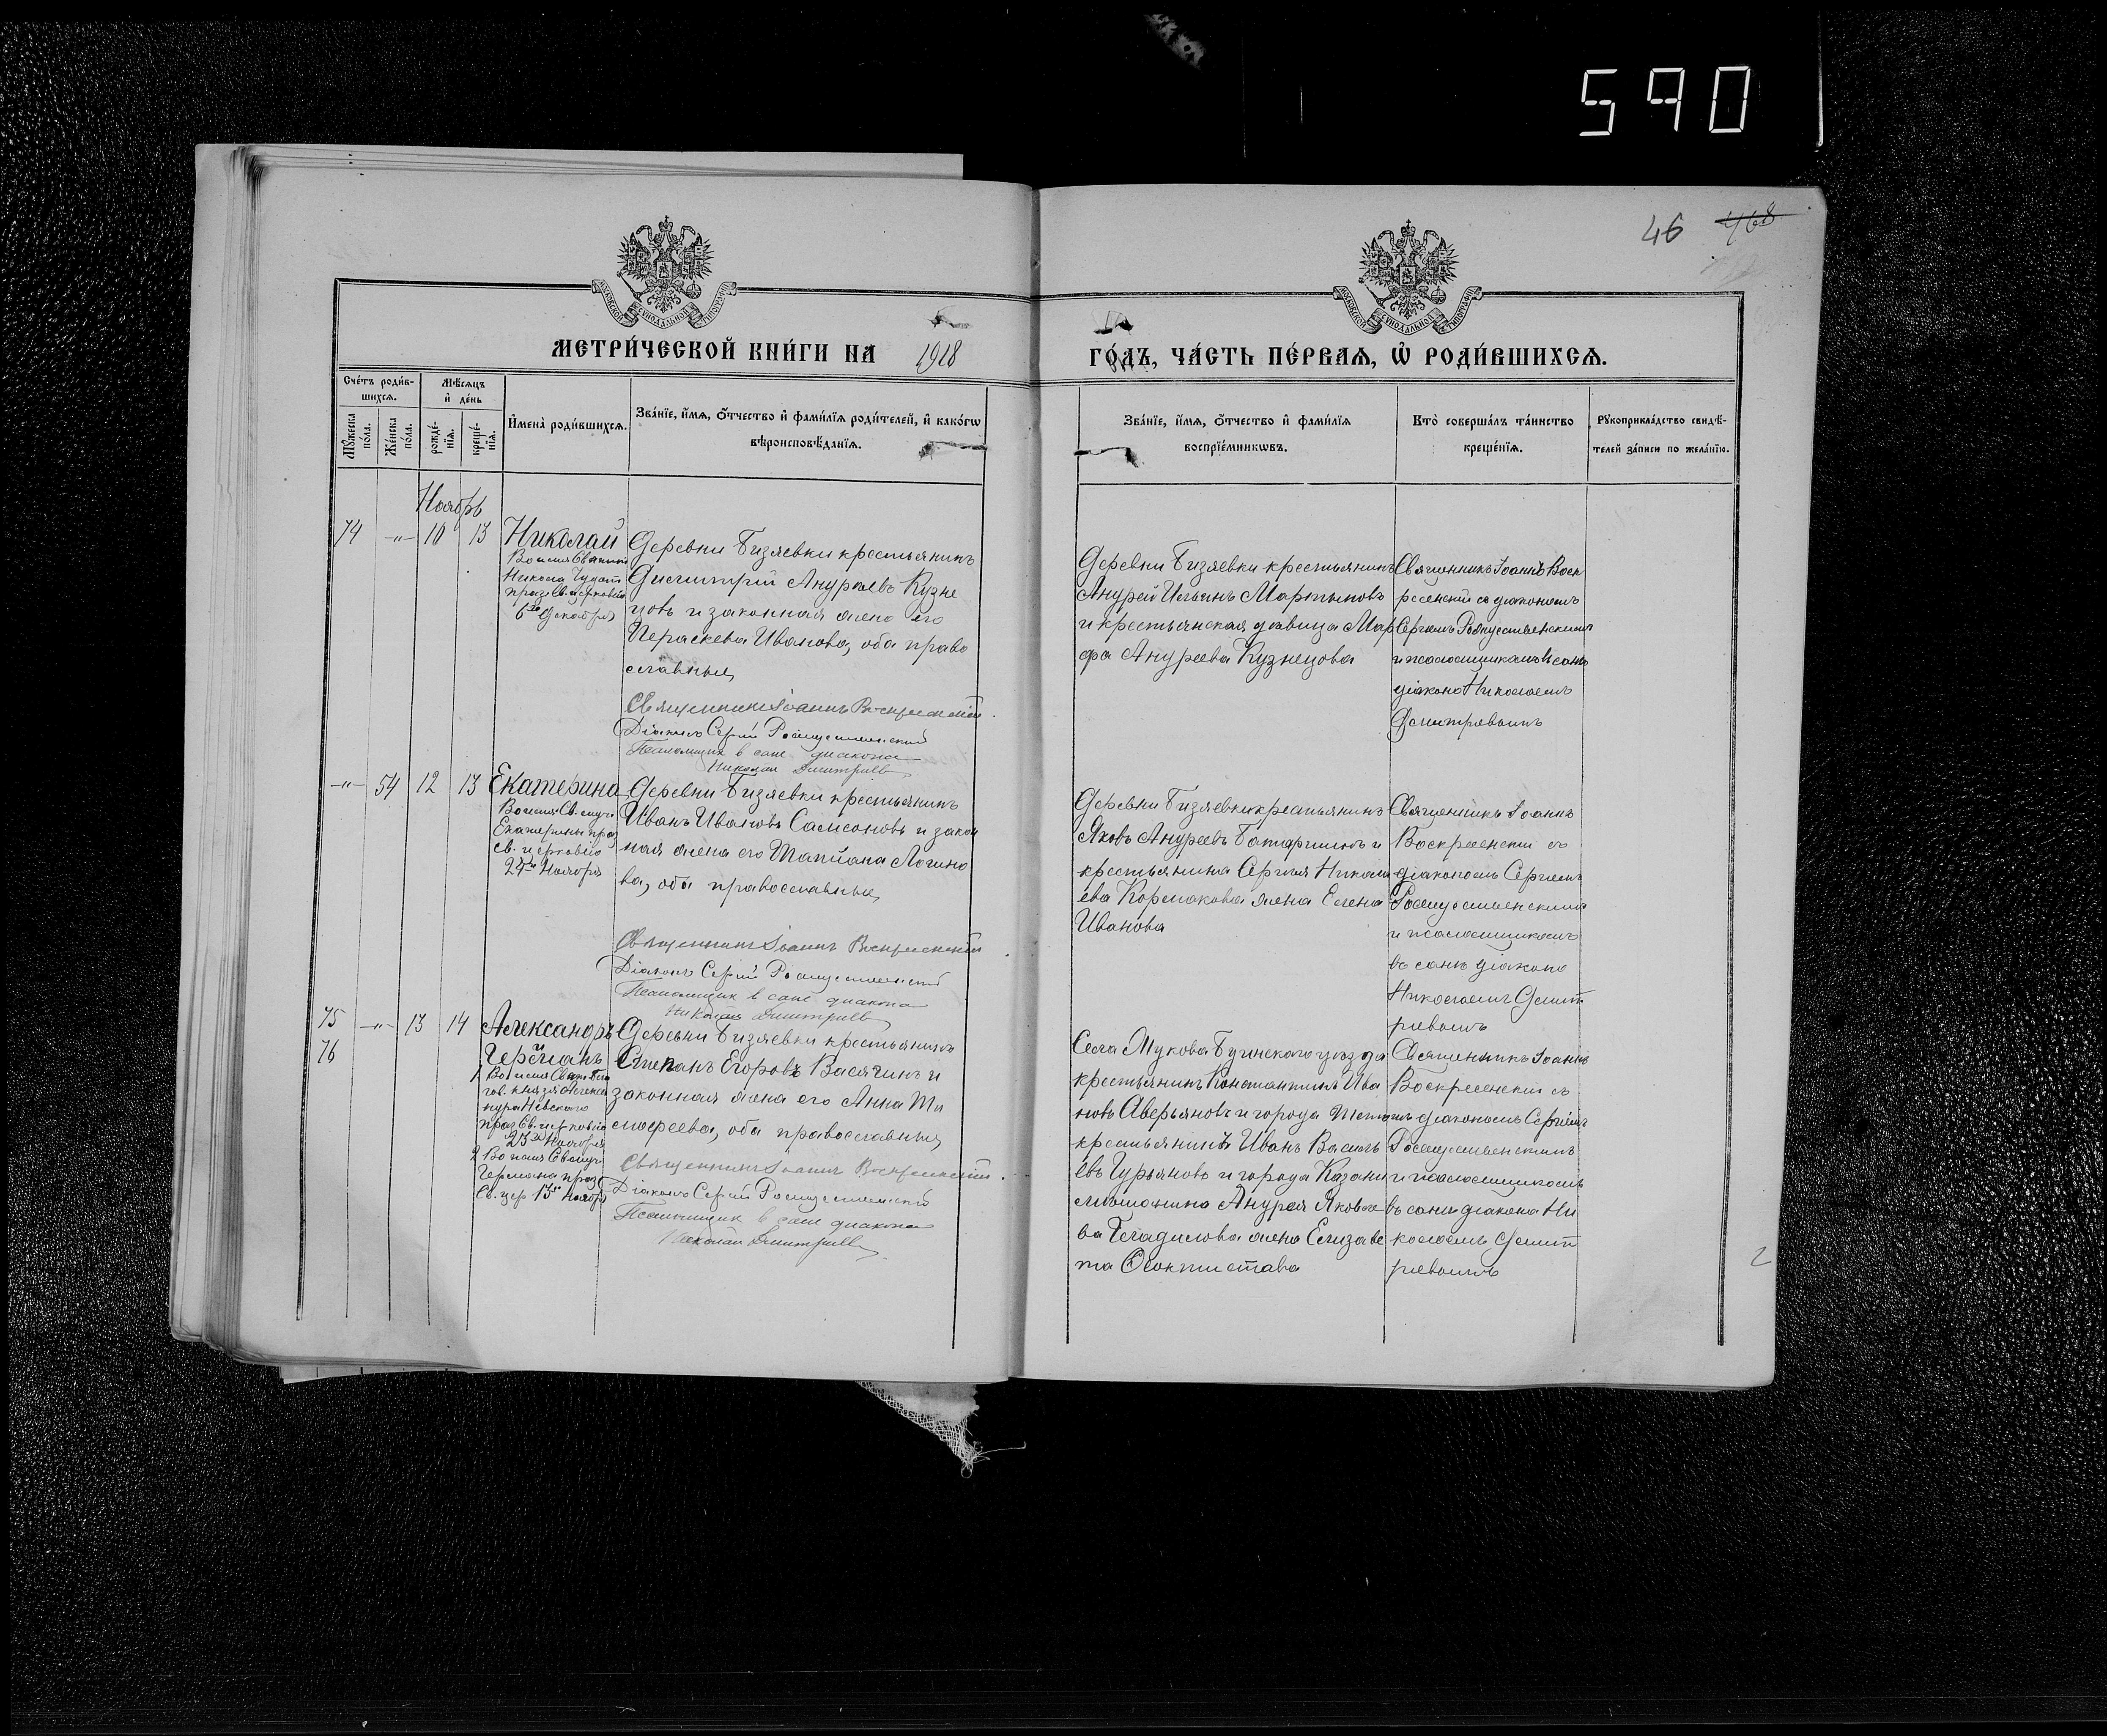 590
46 468
МОСКОВСКОЙ СѴНОДАЛЬНОЙ ТИПОГРАФІИ
МОСКОВСКОЙ СѴНОДАЛЬНОЙ ТИПОГРАФІИ
МЕТРИ́ЧЕСКОЙ КНИ́ГИ НА 1918
ГО́ДЪ, ЧА́СТЬ ПЕ́РВАѦ, Ѡ҆ РОДИ́ВШИХСѦ.
Сче́тъ роди́в-
шихсѧ.
Мѣ́сѧцъ
и҆ де́нь
Мꙋ́жеска
по́ла.
Же́нска
по́ла.
рожде́-
нїѧ.
креще́-
нїѧ.
И҆мена̀ роди́вшихсѧ.
Зва́нїе, и҆́мѧ, ѻ҆́тчество и҆ фами́лїѧ роди́телей, и҆ како́гѡ
вѣроисповѣ́данїѧ.
Зва́нїе, и҆́мѧ, ѻ҆́тчество и҆ фами́лїѧ
воспрїе́мникѡвъ.
Кто̀ соверша́лъ та́инство
креще́нїѧ.
Рꙋкоприкла́дство свидѣ́-
телей за́писи по жела́нїю.
Ноябрь
74 -"- 10 13
Николай
Во имя Святит
Никола Чудот
праз. Св. церковію
6го Декабря
Деревни Бизяевки крестьянинъ
Дисмитрій Андреевъ Кузне
цовъ и законная жена его
Параскева Иванова, оба право
славные,
Священникъ Іоаннъ Воскресенскій.
Діаконъ Сергій Рождественскій
Псаломщик в сане диакона
Николай Дмитриев
Деревни Бизяевки крестьянинъ
Андрей Ильинъ Мартыновъ
и крестьянская дѣвица Мар
фа Андреева Кузнецова
Священникъ Іоаннъ Воск
ресенскій съ діакономъ
Сергіемъ Рождественскимъ
и псаломщикомъ въ санѣ
діакона Николаемъ
Дмитревымъ
-"- 54 12 13
Екатерина
Во имя Св. муч.
Екатерины праз
св. церковію
24го Ноября
Деревни Бизяевки крестьянинъ
Иванъ Ивановъ Самсоновъ и закон
ная жена его Татіана Логино
ва, оба православные,
Священникъ Іоаннъ Воскресенскій
Діаконъ Сергій Рождественскій
Псаломщик в сане диакона
Николай Дмитриев
Деревни Бизяевки крестьянинъ
Яковъ Андреевъ и
крестьянина Сергія Никола
ева Кормакова жена Елена
Иванова
Священникъ Іоаннъ
Воскресенскій съ
діакономъ Сергіемъ
Рождественскимъ
и псаломщикомъ
въ санѣ діакона
Николаемъ Дмит
ріевымъ
75 -"- 13 14
76
Александръ
и
Германъ
1 Во имя Свят. Бла
гов. князя Алекса
ндра Невскаго
праз. Св. церковію
23го Ноября
2 Во имя Св. муч.
Германа праз
Св. цер 13го Ноября
Деревни Бизяевки крестьянинъ
Степанъ Егоровъ Васягинъ и
законная жена его Анна Ти
мофеева, оба православные,
Священникъ Іоаннъ Воскресенскій.
Діаконъ Сергій Рождественскій
Псаломщик в сане диакона
Николай Дмитриев
Села Мукова Буинскаго уѣзда
крестьянинъ Константинъ Ива
новъ Аверьяновъ и города
крестьянинъ Иванъ Василь
евъ Гурьяновъ и города Казани
мѣщанина Андрея Яковле
ва жена Елизаве
та Ѳеоктистова
Священникъ Іоаннъ
Воскресенскій съ
діакономъ Сергіемъ
Рождественскимъ
и псаломщикомъ
въ санѣ діакона Ни
колаемъ Дмит
ріевымъ
2